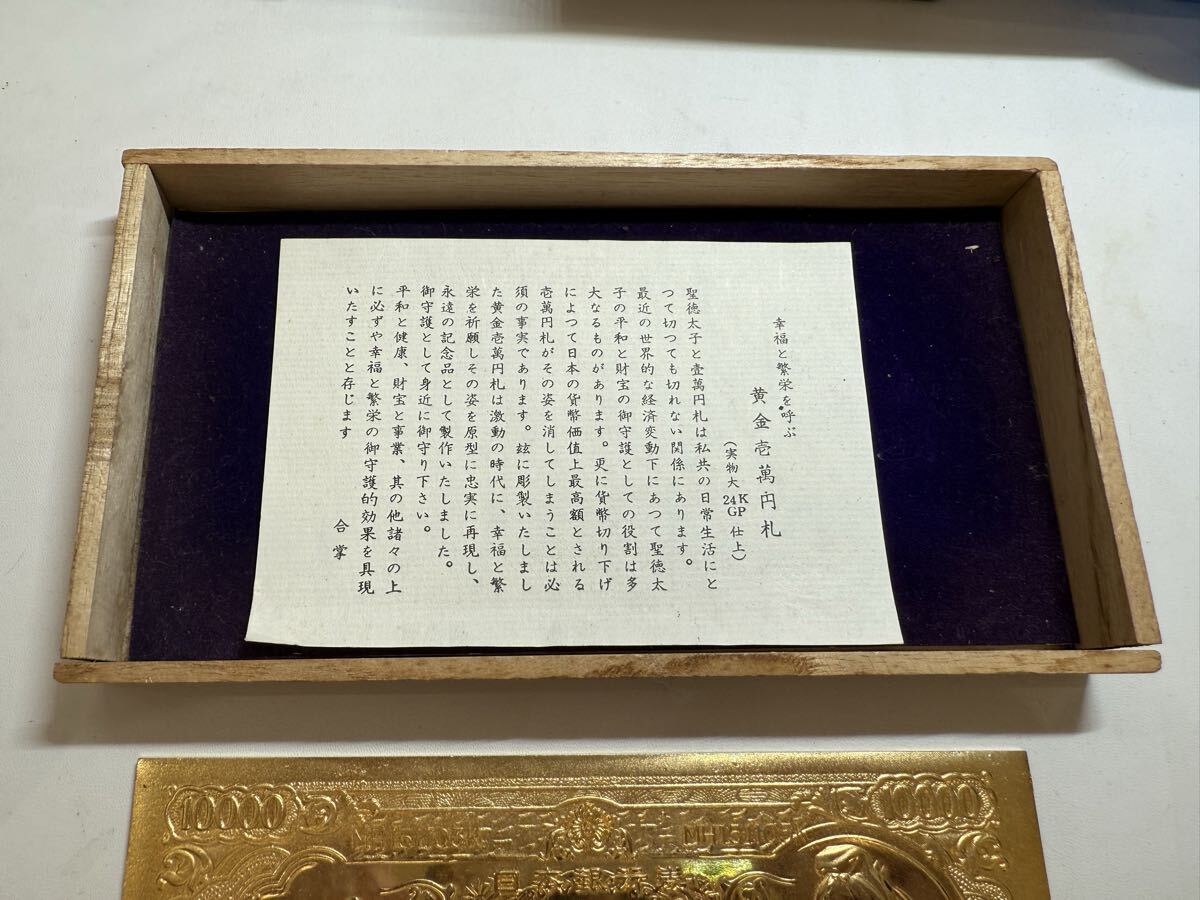 幸福と繁栄を呼ぶ
黄金壱萬円札
（実物大 24KGP 仕上）
聖徳太子と壹萬円札は私共の日常生活にと
つて切つても切れない関係にあります。
最近の世界的な経済変動下にあつて聖徳太
子の平和と財宝の御守護としての役割は多
大なるものがあります。更に貨幣切り下げ
によつて日本の貨幣価値上最高額とされる
壱萬円札がその姿を消してしまうことは必
須の事実であります。玆に彫製いたしまし
た黄金壱萬円札は激動の時代に、幸福と繁
栄を祈願しその姿を原型に忠実に再現し、
永遠の記念品として製作いたしました。
御守護として身近に御守り下さい。
平和と健康、財宝と事業、其の他諸々の上
に必ずや幸福と繁栄の御守護的効果を具現
いたすことと存じます
合掌
10000
10000
日本銀行券